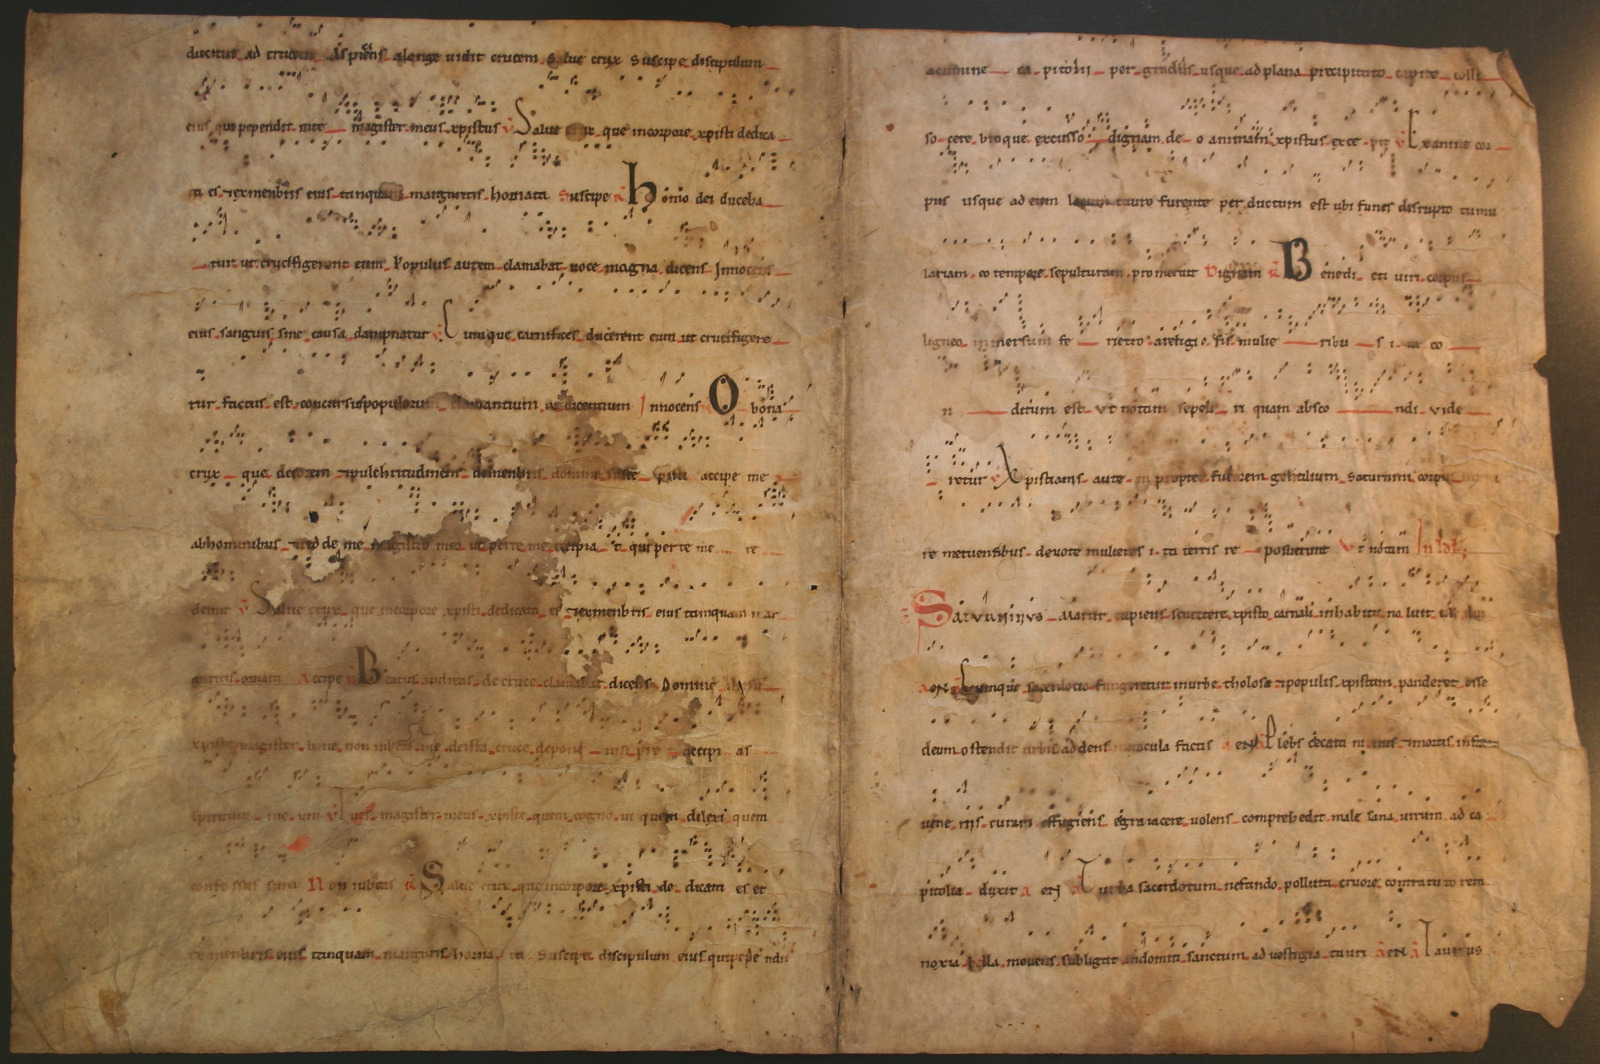 ducitur ad crucem Aspiciens alonge uidit crucem Salue crux Suscipe discipulum
eius qui pependit in te magister meus xpistus ℣ Salue crux que incorpore xpisti dedica
ta es & exmenbris eius tanquam margaritis hornata Suscipe ℟ Homo dei duceba
tur ut crucifigerent eum Populus autem clamabat uoce magna dicens Innocens
eius sanguis sine causa dampnatur ℣ Cumque carnifices ducerent eum ut crucifigere
tur factus est concursus populorum clamantium ac dicentium Innocens O bona
crux que decorem & pulchritudinem demenbris domini accipe me
abhominibus & redde me magistro meo ut per te me recipiat qui per te me re
demit ℣ Salue crux que incorpore xpisti dedicata es & exmenbris eius tanquam mar
garitis ornata Accipe ℟ Beatus andreas de cruce clamabat dicens Domine
xpiste magister bone non iubeas me de ista cruce deponi nisi pre accipi as
spiritum me um ℣ Tu es magister meus xpiste quem cogno ui quem dilexi quem
confessus sum Non iubeas ℟ Salue crux que incorpore xpisti de dicata es et
exmenbris eius tanquam margaritis horna ta Suscipe discipulum eius qui pepe ndit
acumine ca pitolii per gradus usque ad plana precipitato capite colli
so cere broque excusso dignam de o animam xpistus exce pit ℣ Exanime cor
pus usque ad eum locum tauro furente per ductum est ubi fune disrupto tumu
lariam eo tempore sepulturam promeruit Dignam ℟ Benedi cti uiri corpus
ligneo inmersum fe retro areligio sis mulie ribu s i ua co
n ditum est Vt notum sepeli ri quam absco ndi uide
retur ℣ Xpistianis aute m propter furorem gentilium Saturnini corpus
re metuentibus deuote mulieres i ta terris re posuerunt Vt notum In laud
Saturninus Martir cupiens xpisto carnali inhabita no luit
AEN Cumque sacerdotio fungeretur in urbe tholosa & populis xpistum panderet esse
deum ostendit urbis ad dens miracula factis AEN Plebs cecata mortis
uene riis curari effugiens egra iacere uolens comprehedit male sana uirum ad ca
pitolia duxit AEN Turba sacerdotum nefando polluta cruore contra tu to rem
noxia bella mouens subligat indomiti sanctum ad uestigia tauri AEN Taurus